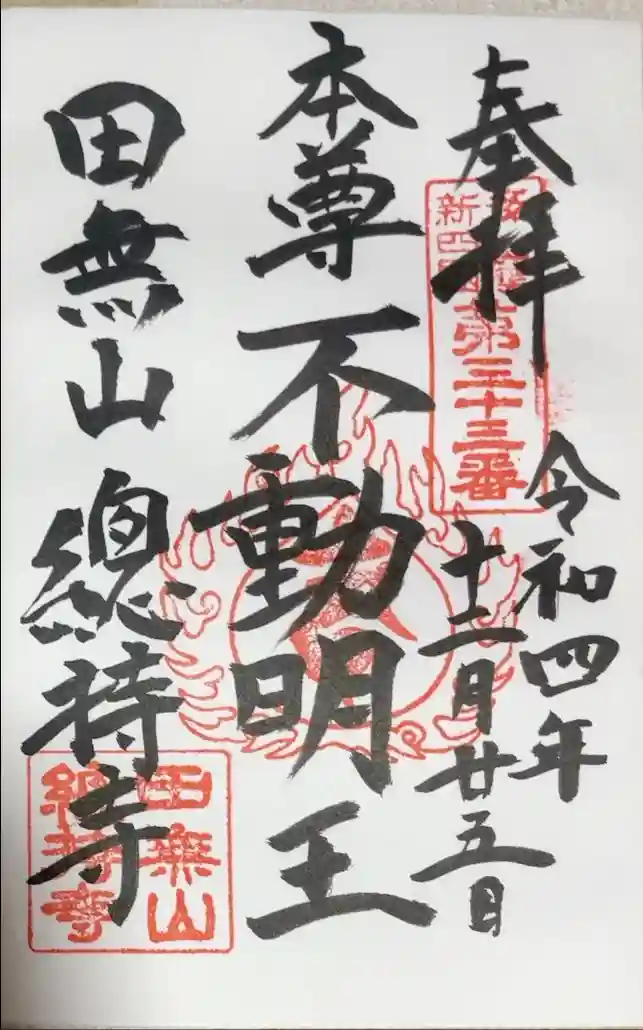 奉拝
令和四年
十二月廿五日
新四国
第三十三番
本尊不動明王
田無山 總持寺
田無山
總持寺